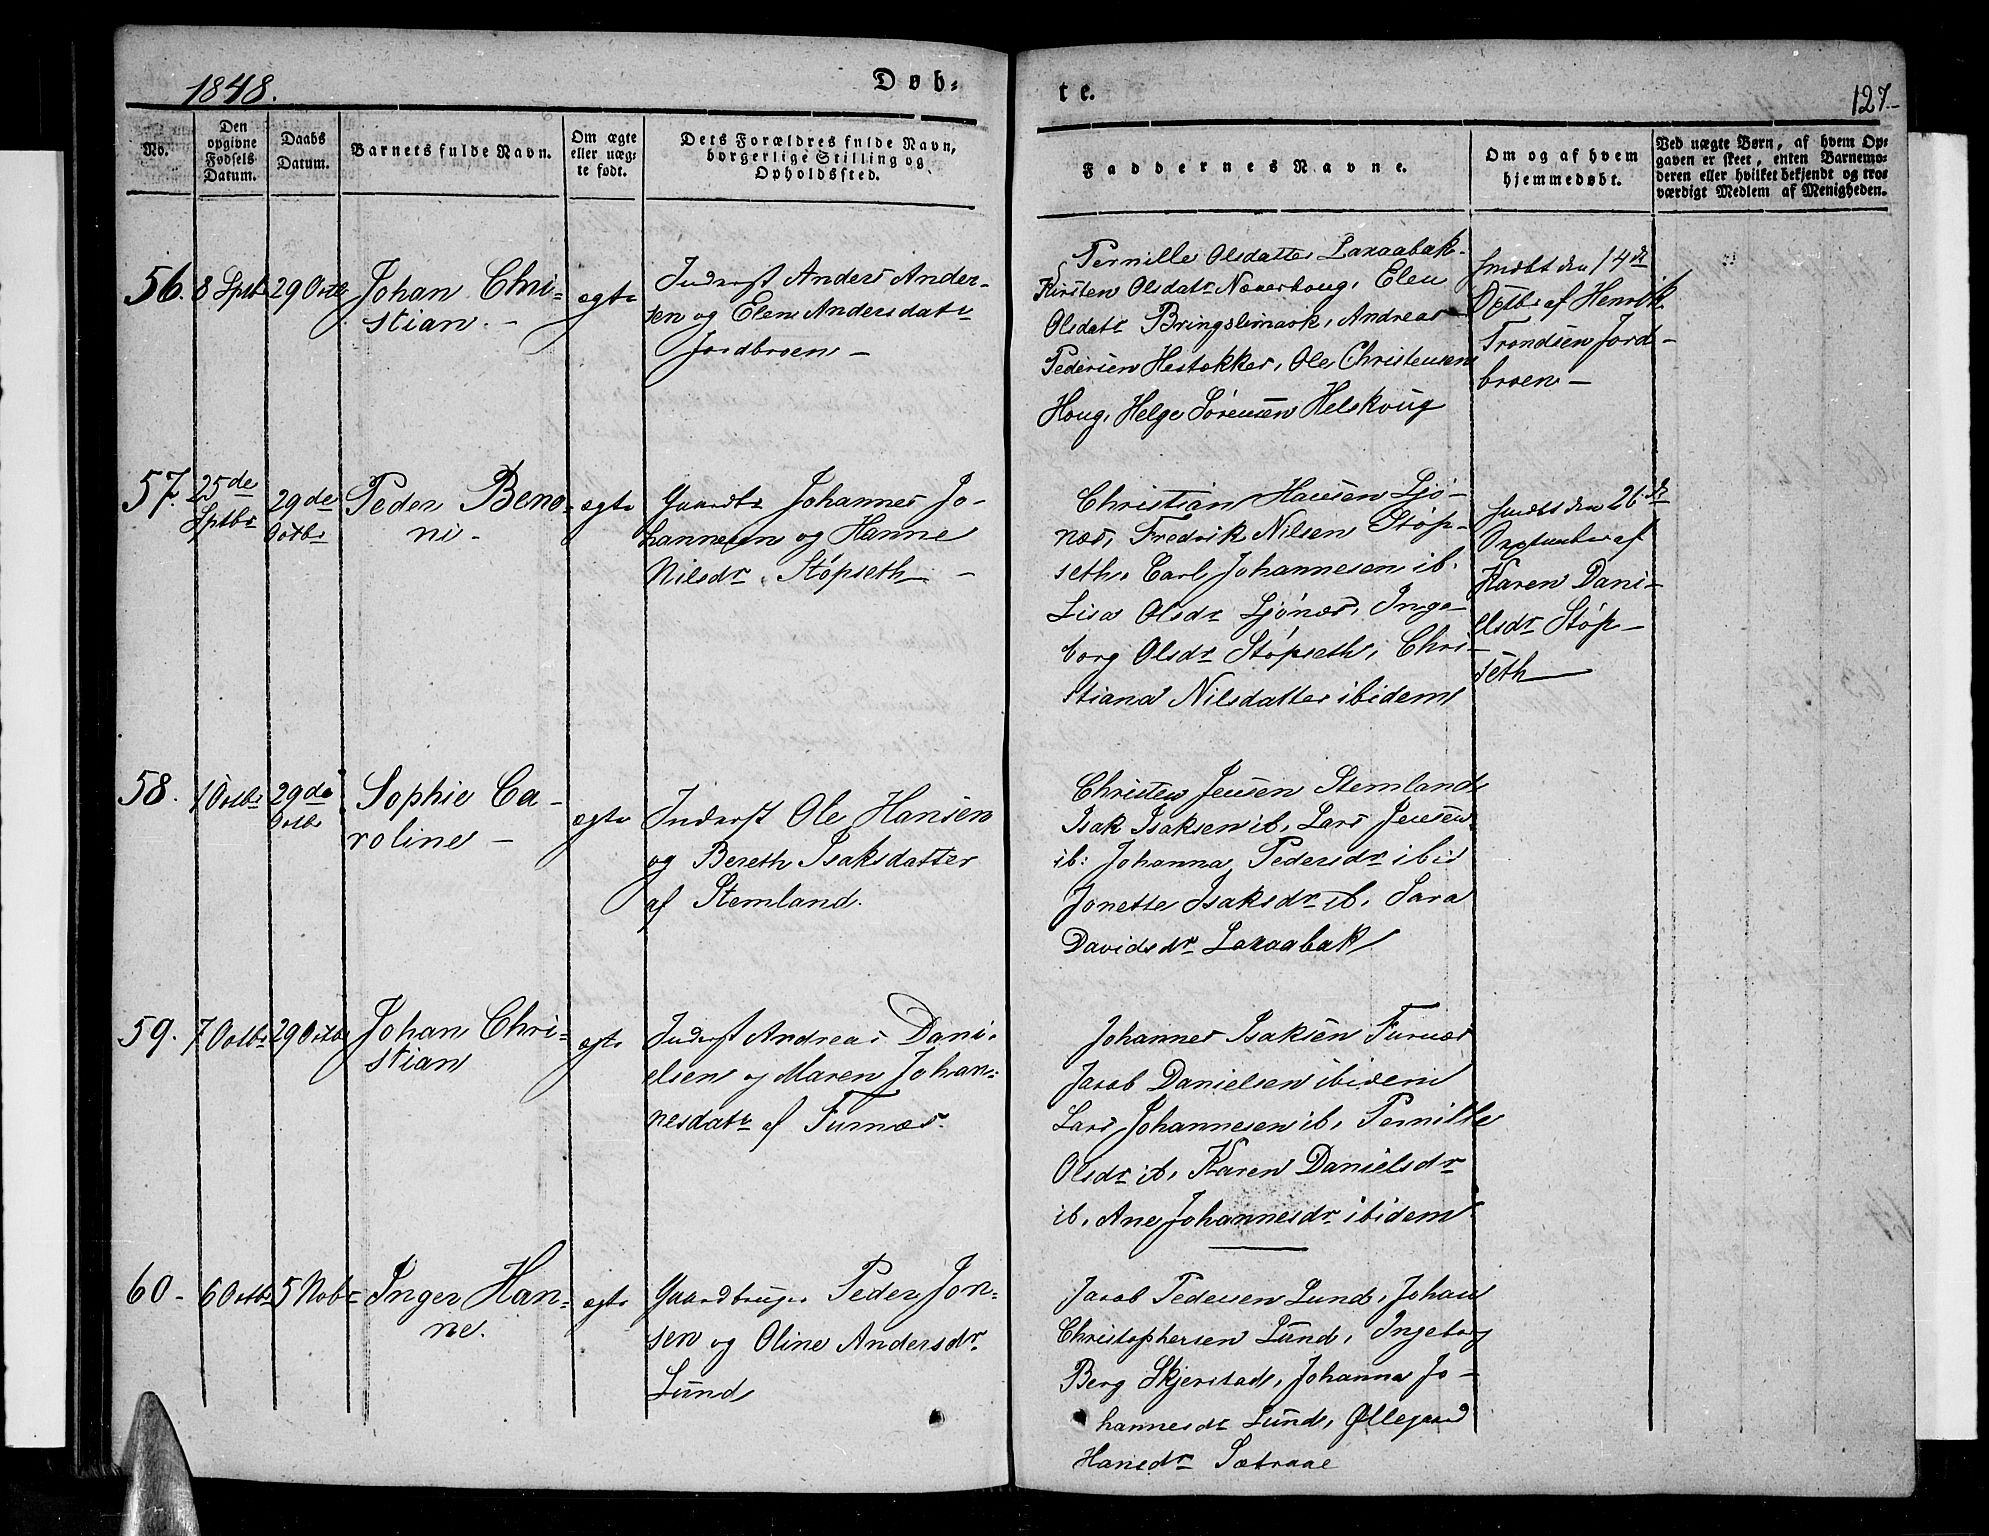 1848.
Døb-
te.
127.
No.
Den
opgivne
Fødsels
Datum.
Daabs
Datum.
Barnets fulde Navn.
Om ægte
eller uæg-
te født.
Dets Forældres fulde Navn,
borgerlige Stilling og
Opholdssted.
Faddernes Navne.
Om og af hvem
hjemmedøbt.
Ved uægte Børn, af hvem Op-
gaven er skeet, enten Barnemo-
deren eller hvilket bekjendt og tro-
værdigt Medlem af Menigheden.
56.
8 Sptbr
29 Octbr
Johan Chri-
stian. -
ægte
Inderst Anders Ander-
sen og Elen Andersdatr
Jordbroen -
Pernille Olsdatter Laxaabak.
Kirsten Olsdatr Naverhoug, Elen
Olsdatr Bringslimark, Andreas
Pedersen Hestekker, Ole Christensen
Houg, Helge Sørensen Helskoug
den 14de
Octbr af Henrik
Trondsen Jord-
broen -
57.
25de
Sptbr
29de
Octbr
Peder Beno-
ni -
ægte
Gaardbr Johannes Jo-
hannesen og Hanne
Nilsdr. Støpseth -
Christian Hansen Ljø-
næs, Fredrik Nilsen Støp-
seth, Carl Johannesen ib.
Lisa Olsdr Ljønæs, Inge-
borg Olsdr Støpseth, Chri-
stiana Nilsdatter ibidem
den 26de
September af
Karen Dani-
elsdr Støp-
seth
58.
1 Octbr
29de
Octbr
Sophie Ca-
roline -
ægte
Inderst Ole Hansen
og Bereth Isaksdatter
af Stemland.
Christen Jensen Stemland
Isak Isaksen ib, Lars Jensen
ib: Johanna Pedersdr ibid
Jonette Isaksdr ib, Sara
Davidsdr Laxaabak
59.
7 Octbr
29 Octbr
Johan Chri-
stian
ægte
Inderst Andreas Dani-
elsen og Maren Johan-
nesdatr af Furnæs.
Johannes Isaksen Furnæs
Jacob Danielsen ibidem
Lars Johannesen ib, Pernille
Olsdr ib, Karen Danielsdr
ib, Ane Johannesdr ibidem
60 -
6 Octbr
5 Novbr
Inger Han-
ne.
ægte
Gaardbruger Peder Jon-
sen og Oline Andersdr
Lund
Jacob Pedersen Lund, Johan
Christophersen Lund, Ingeborg
Berg Skjerstad, Johanna Jo-
hannesdr Lund, Øllegaard
Hansdr Sætraae